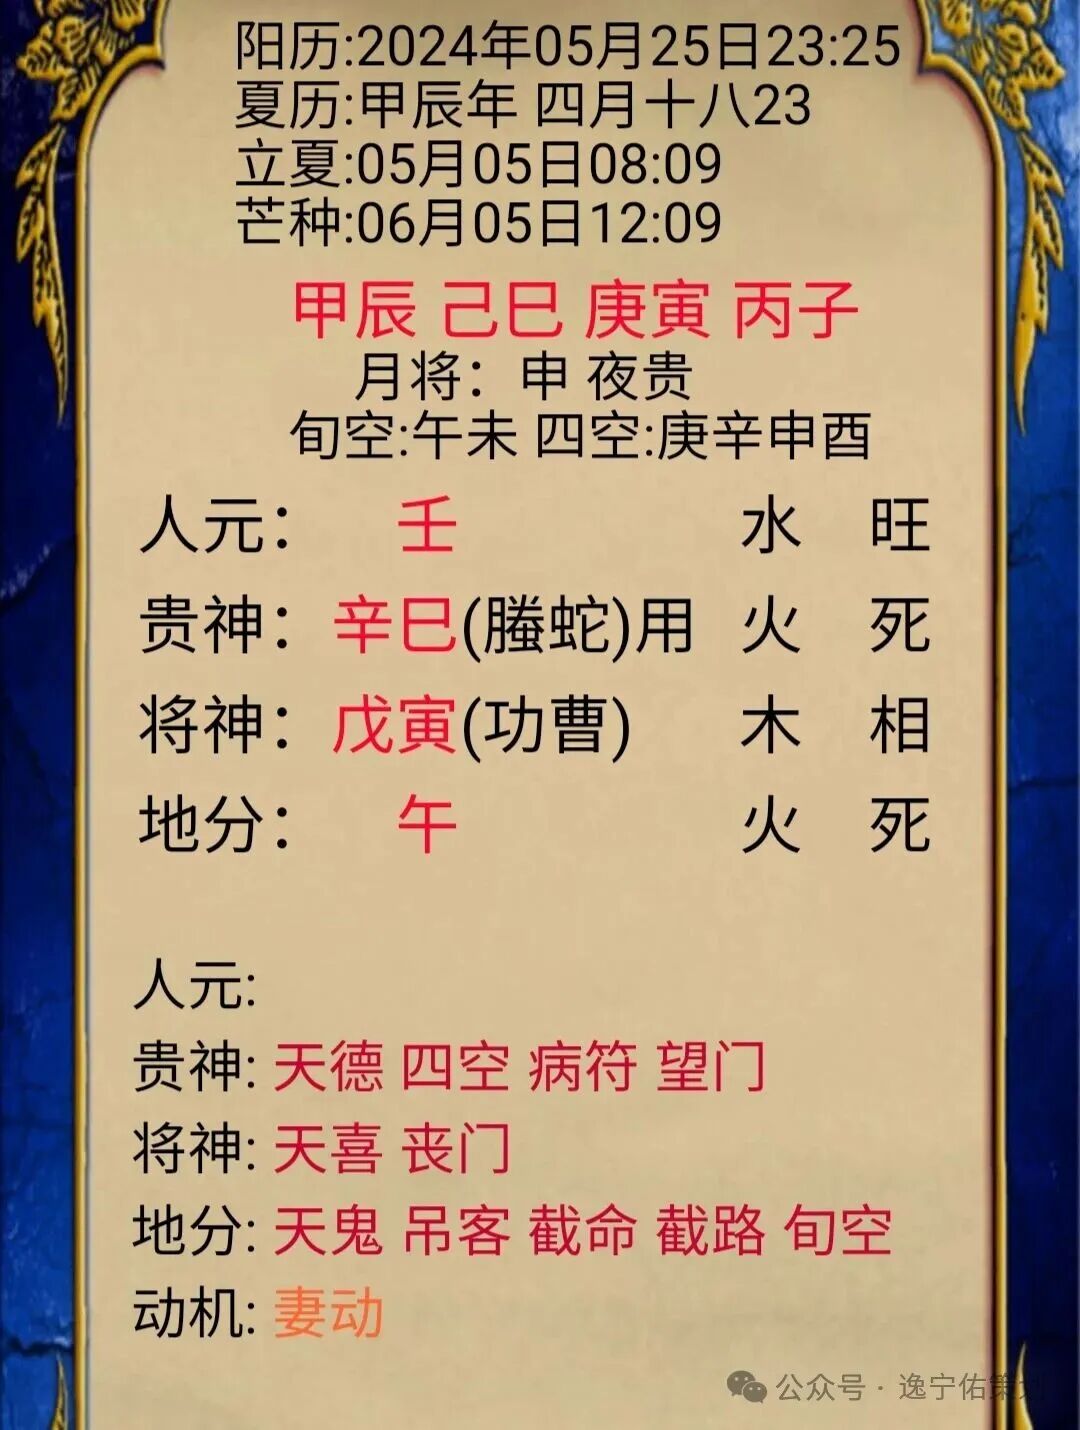 阳历:2024年05月25日23:25
夏历:甲辰年 四月十八23
立夏:05月05日08:09
芒种:06月05日12:09
甲辰 己巳 庚寅 丙子
月将：申 夜贵
旬空:午未 四空:庚辛申酉
人元： 壬 水 旺
贵神：辛巳(螣蛇)用 火 死
将神：戊寅(功曹) 木 相
地分： 午 火 死
人元:
贵神: 天德 四空 病符 望门
将神: 天喜 丧门
地分: 天鬼 吊客 截命 截路 旬空
动机: 妻动
公众号 · 逸宁佑策